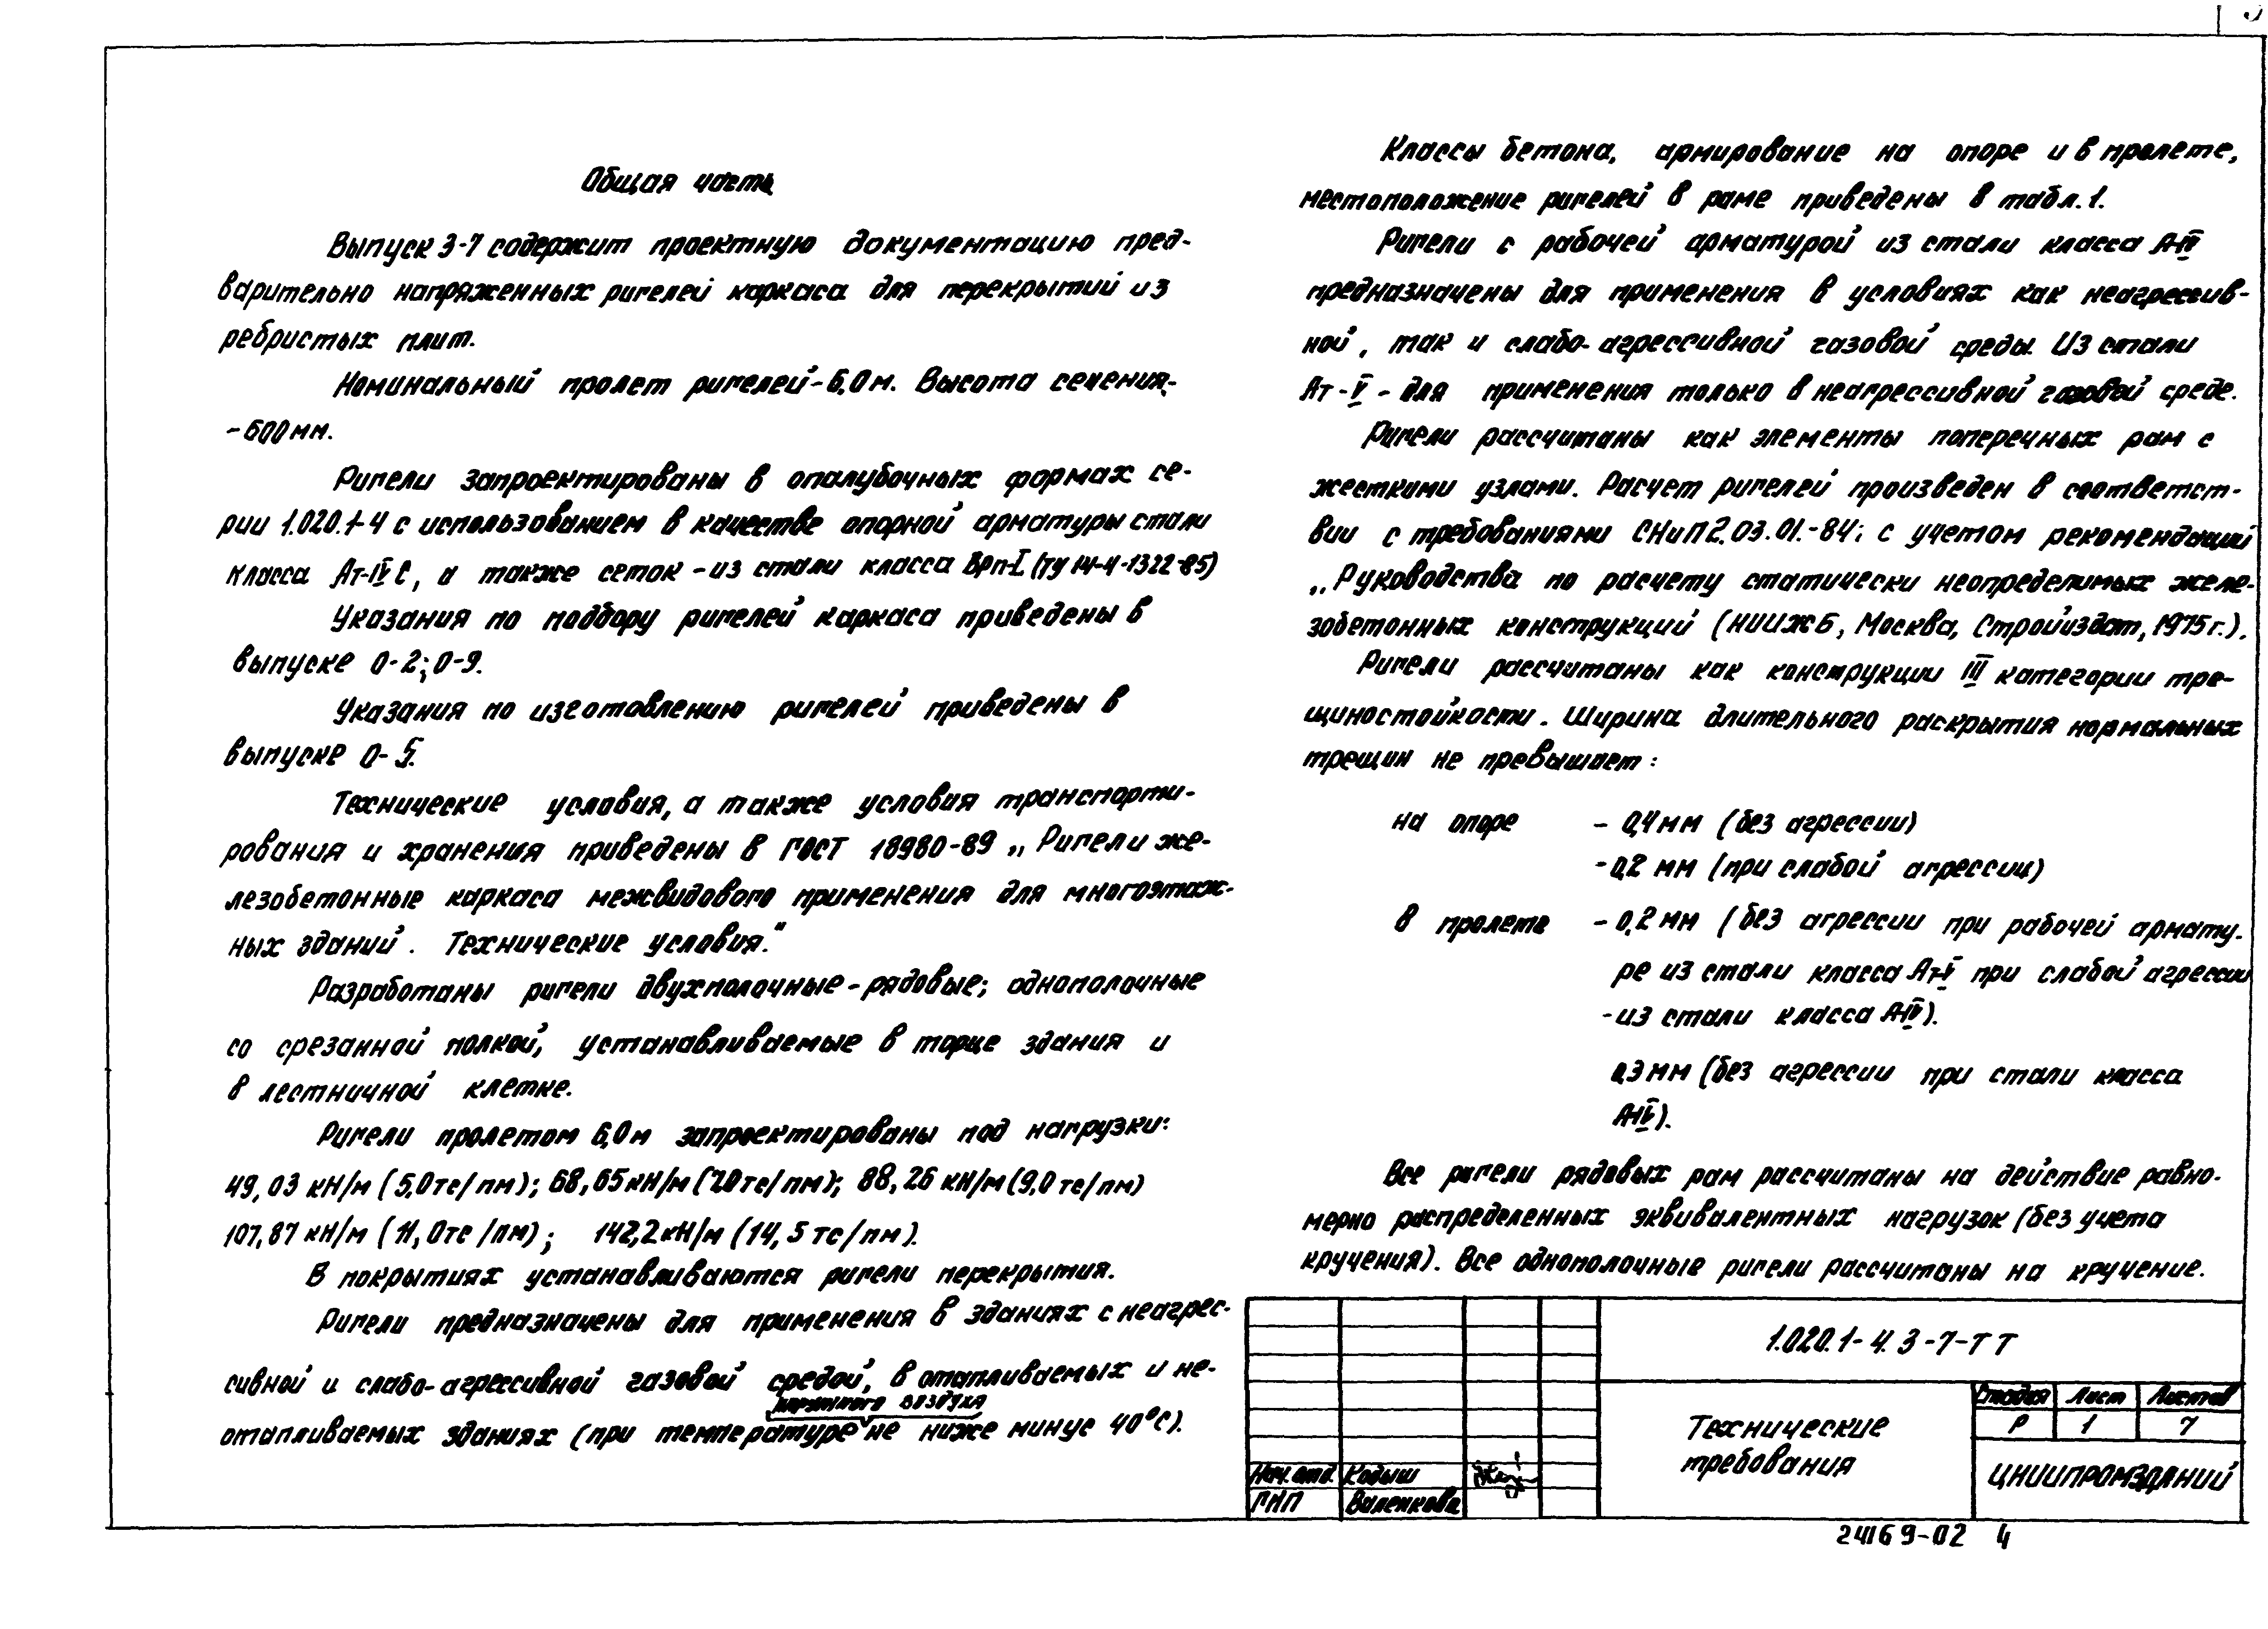 Общая часть
Выпуск 3-7 содержит проектную документацию пред-
варительно напряженных ригелей каркаса для перекрытий из
ребристых плит.
Номинальный пролет ригелей-6,0м. Высота сечения-
-600мм.
Ригели запроектированы в опалубочных формах се-
рии 1.020.1-4 с использованием в качестве опорной арматуры стали
класса Ат-IVС, а также сеток-из стали класса Врп-I (ТУ 14-4-1322-85)
Указания по подбору ригелей каркаса приведены в
выпуске 0-2; 0-9.
Указания по изготовлению ригелей приведены в
выпуске 0-5.
Технические условия, а также условия транспорти-
рования и хранения приведены в ГОСТ 18980-89 „Ригели же-
лезобетонные каркаса межвидового применения для многоэтаж-
ных зданий. Технические условия."
Разработаны ригели двухполочные-рядовые; однополочные
со срезанной полкой, устанавливаемые в торце здания и
в лестничной клетке.
Ригели пролетом 6,0м запроектированы под нагрузки:
49,03 кН/м (5,0тс/пм); 68,65кН/м (7,0тс/пм); 88,26 кН/м (9,0 тс/пм)
107,87 кН/м (11,0тс/пм); 142,2кН/м (14,5 тс/пм).
В покрытиях устанавливаются ригели перекрытия.
Ригели предназначены для применения в зданиях с неагрес-
сивной и слабо-агрессивной газовой средой, в отапливаемых и не-
наружного воздуха
отапливаемых зданиях (при температуре не ниже минус 40°С).
Классы бетона, армирование на опоре и в пролете,
местоположение ригелей в раме приведены в табл.1.
Ригели с рабочей арматурой из стали класса А-IV
предназначены для применения в условиях как неагрессив-
ной, так и слабо-агрессивной газовой среды. Из стали
Ат-V - для применения только в неагрессивной газовой среде.
Ригели рассчитаны как элементы поперечных рам с
жесткими узлами. Расчет ригелей произведен в соответст-
вии с требованиями СНиП 2.03.01.-84; с учетом рекомендаций
„Руководства по расчету статически неопределимых желе-
зобетонных конструкций (НИИЖБ, Москва, Стройиздат, 1975г.).
Ригели рассчитаны как конструкции III категории тре-
щиностойкости. Ширина длительного раскрытия нормальных
трещин не превышает:
на опоре - 0,4мм (без агрессии)
- 0,2 мм (при слабой агрессии)
в пролете - 0,2 мм (без агрессии при рабочей армату-
ре из стали класса Ат-V при слабой агрессии
-из стали класса А-IV).
0,3 мм (без агрессии при стали класса
А-IV).
Все ригели рядовых рам рассчитаны на действие равно-
мерно распределенных эквивалентных нагрузок (без учета
кручения). Все однополочные ригели рассчитаны на кручение.
1.020.1-4. 3-7-ТТ
Технические
требования
Стадия Лист Листов
Р 1 7
ЦНИИПРОМЗДАНИЙ
Нач.отд. Кодыш
ГИП Валенкова
24169-02 4